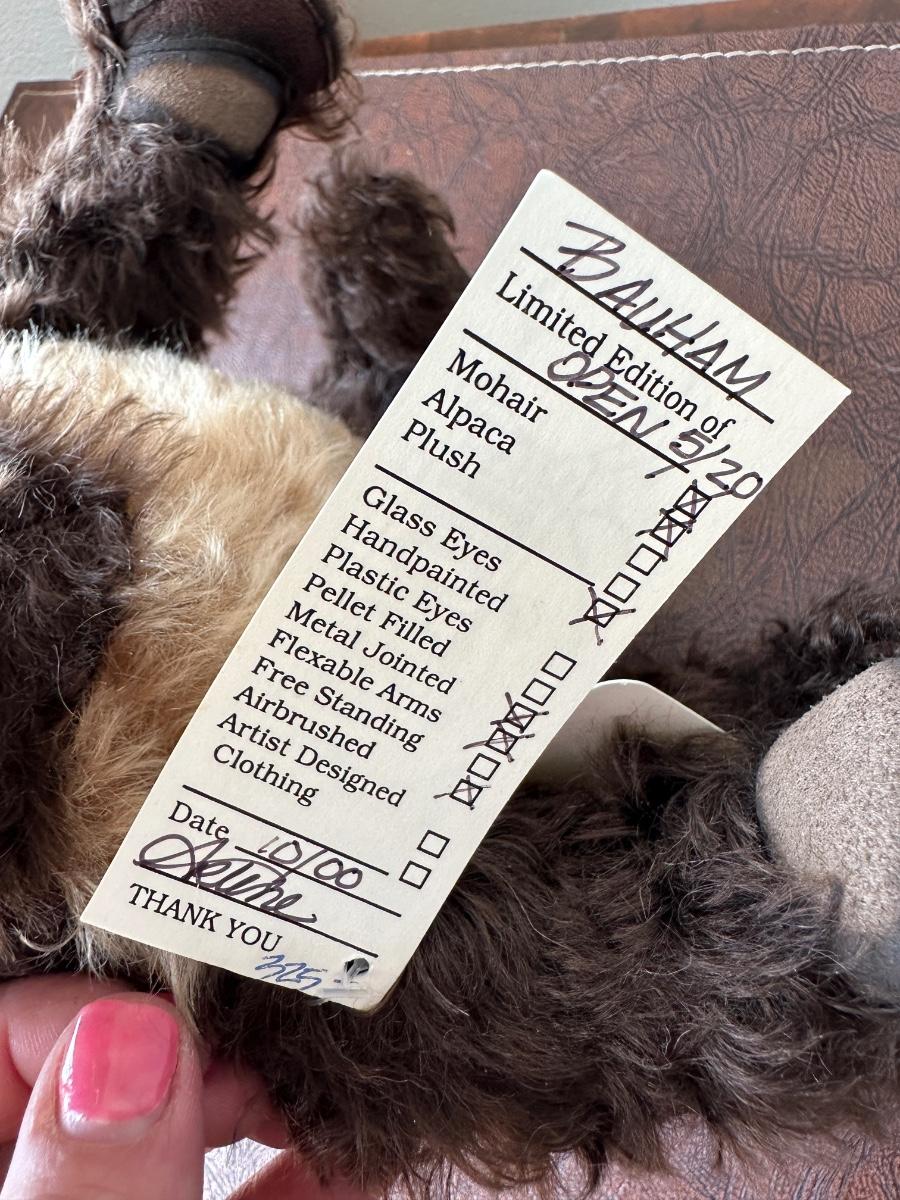 BAUHAM
Limited Edition of
OPEN 5/20
Mohair
Alpaca
Plush
Glass Eyes
Handpainted
Plastic Eyes
Pellet Filled
Metal Jointed
Flexable Arms
Free Standing
Airbrushed
Artist Designed
Clothing
Date 10/00
THANK YOU
325